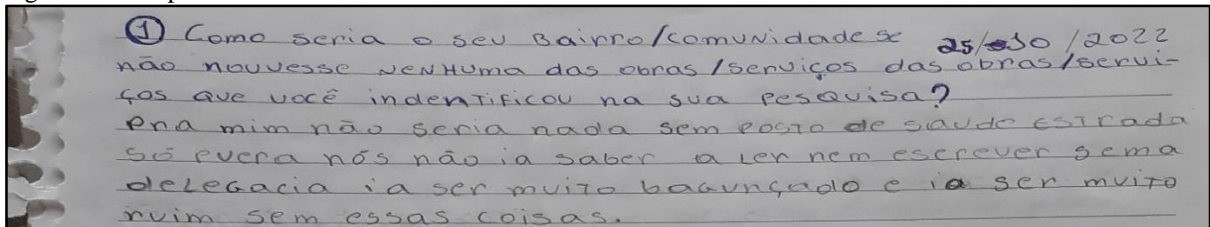 ① Como seria o seu Bairro/comunidade se 25/10/2022
não houvesse NENHUMA das obras/serviços das obras/servi-
ços que você indentificou na sua pesquisa?
pra mim não seria nada sem posto de saude estrada
nós não ia saber a ler nem escrever sem a
delegacia ia ser muito bagunçado e ia ser muito
ruim sem essas coisas.